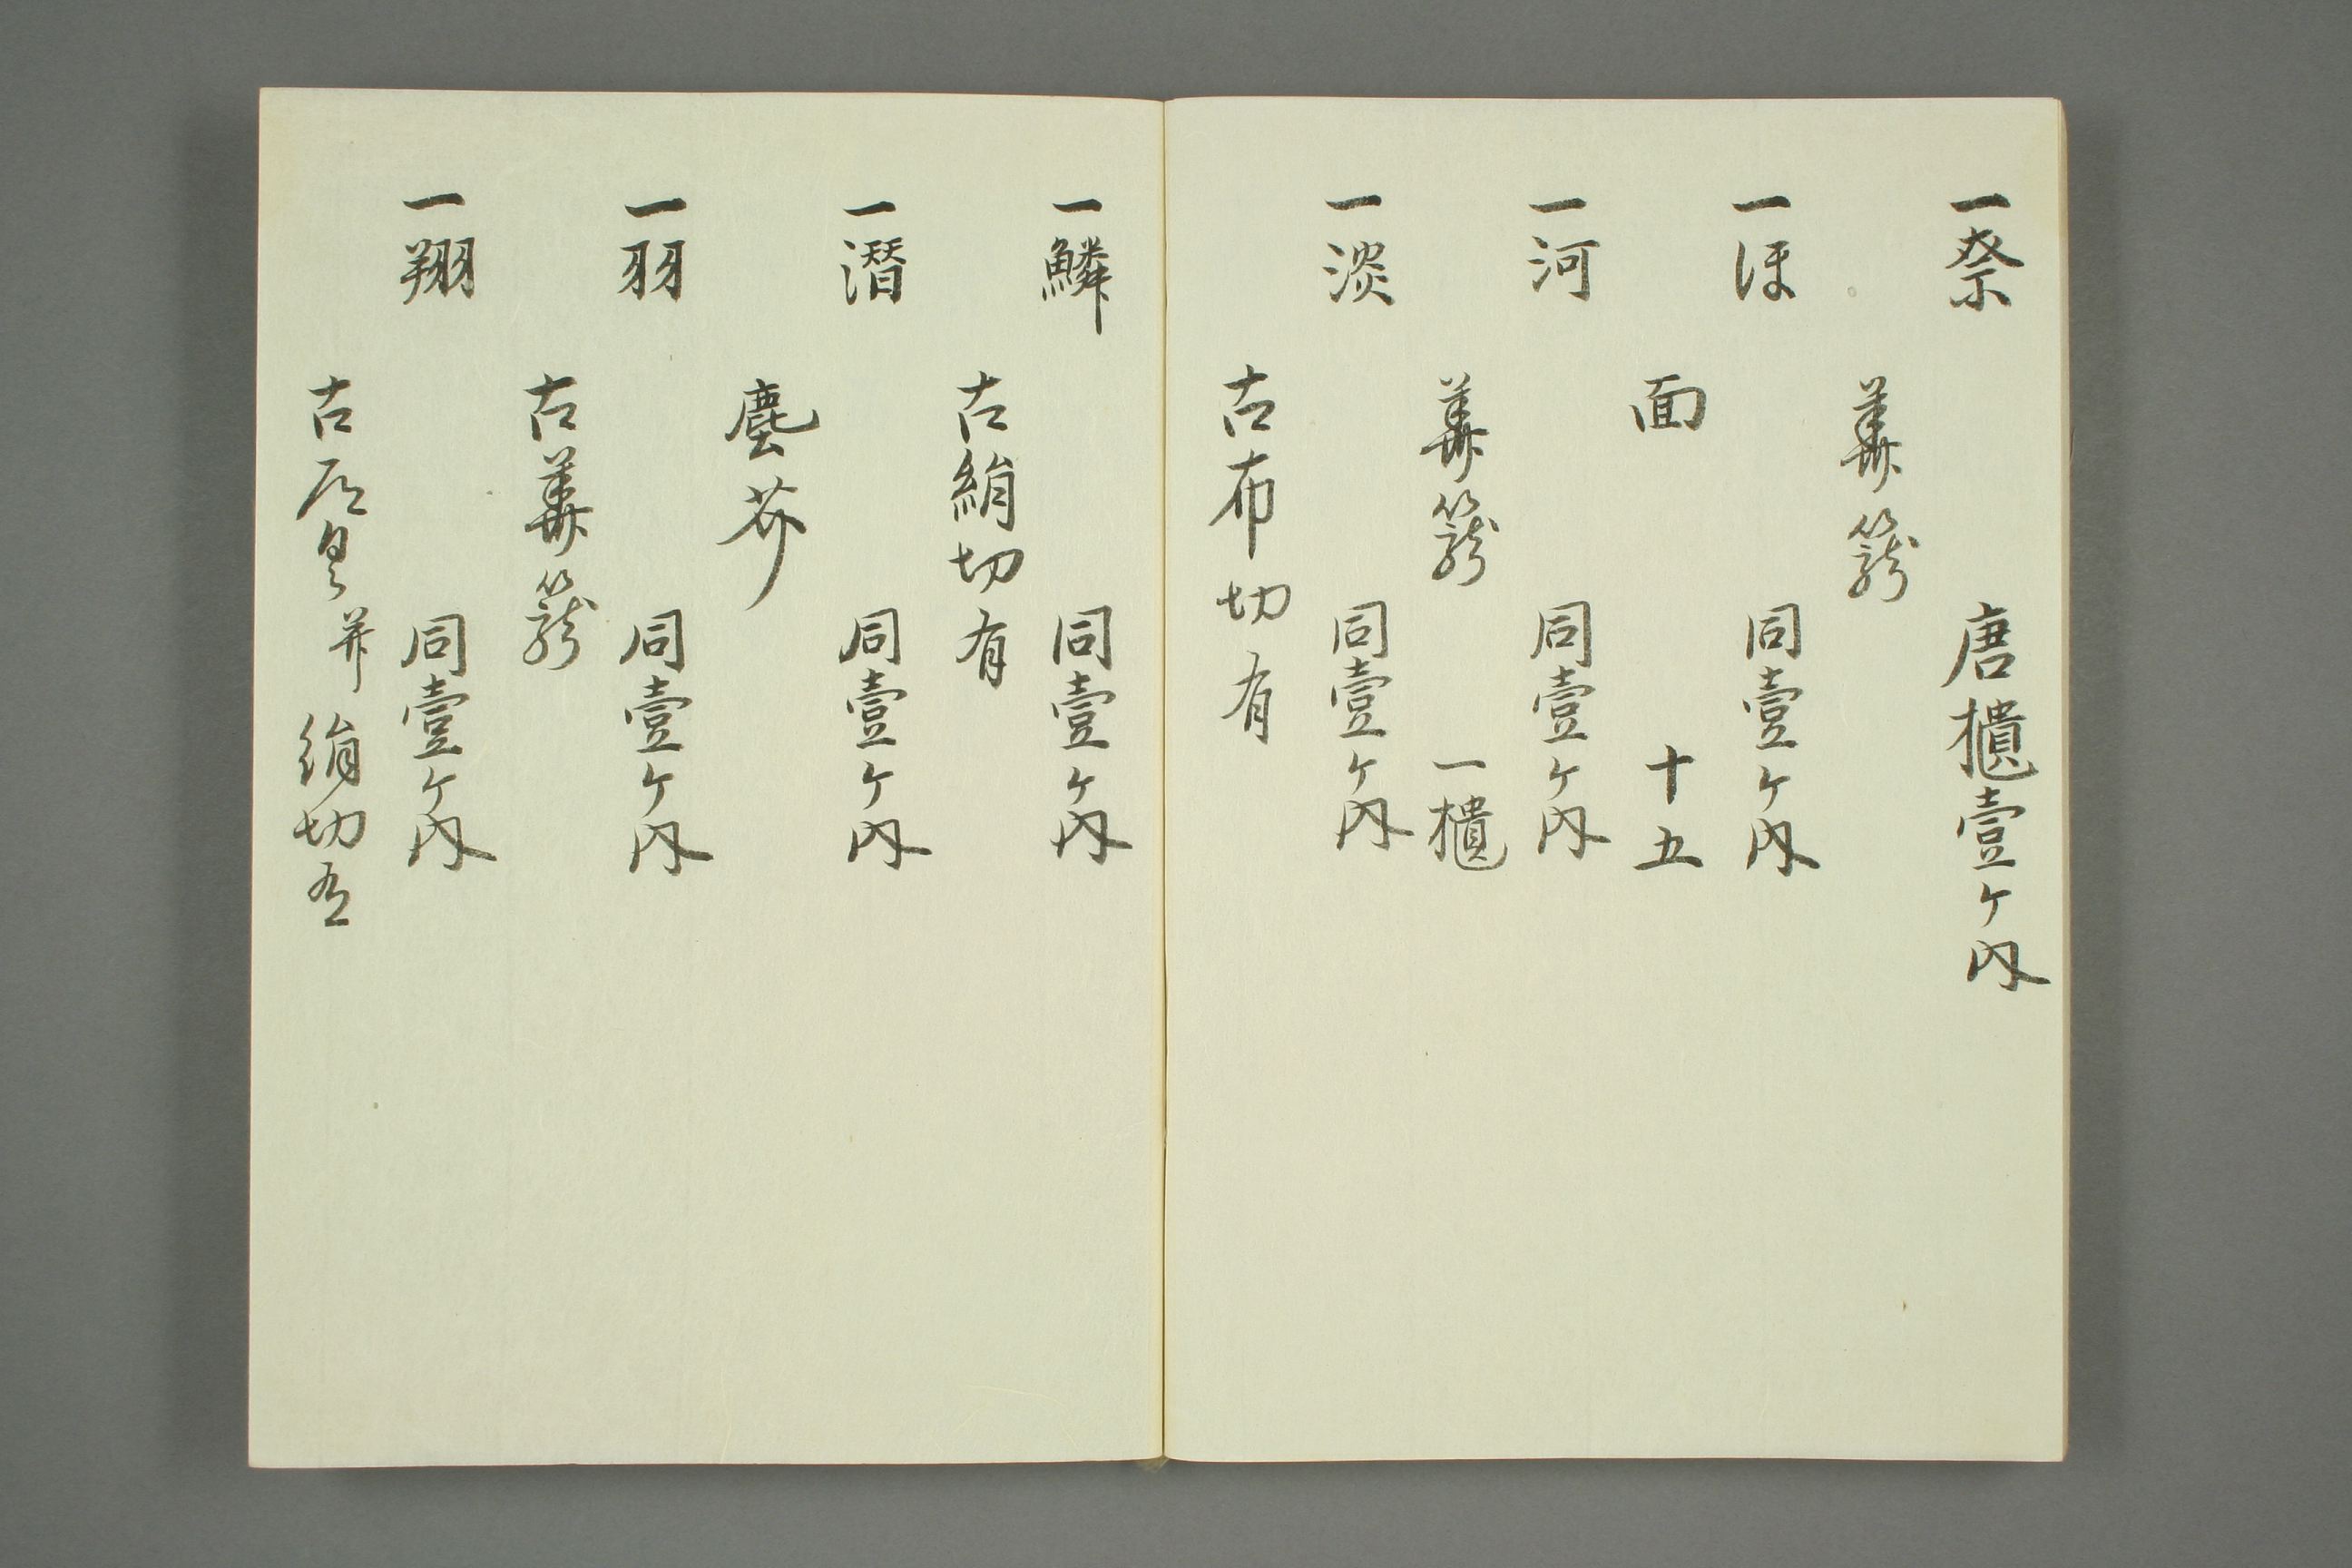 一祭 唐櫃壹ケ内
華籠
一ほ 同壹ケ内
面 十五
一河 同壹ケ内
華籠 一櫃
一淡 同壹ケ内
古布切有
一鱗 同壹ケ内
古絹切有
一潛 同壹ケ内
塵芥
一羽 同壹ケ内
古華籠
一翔 同壹ケ内
古 并絹切有